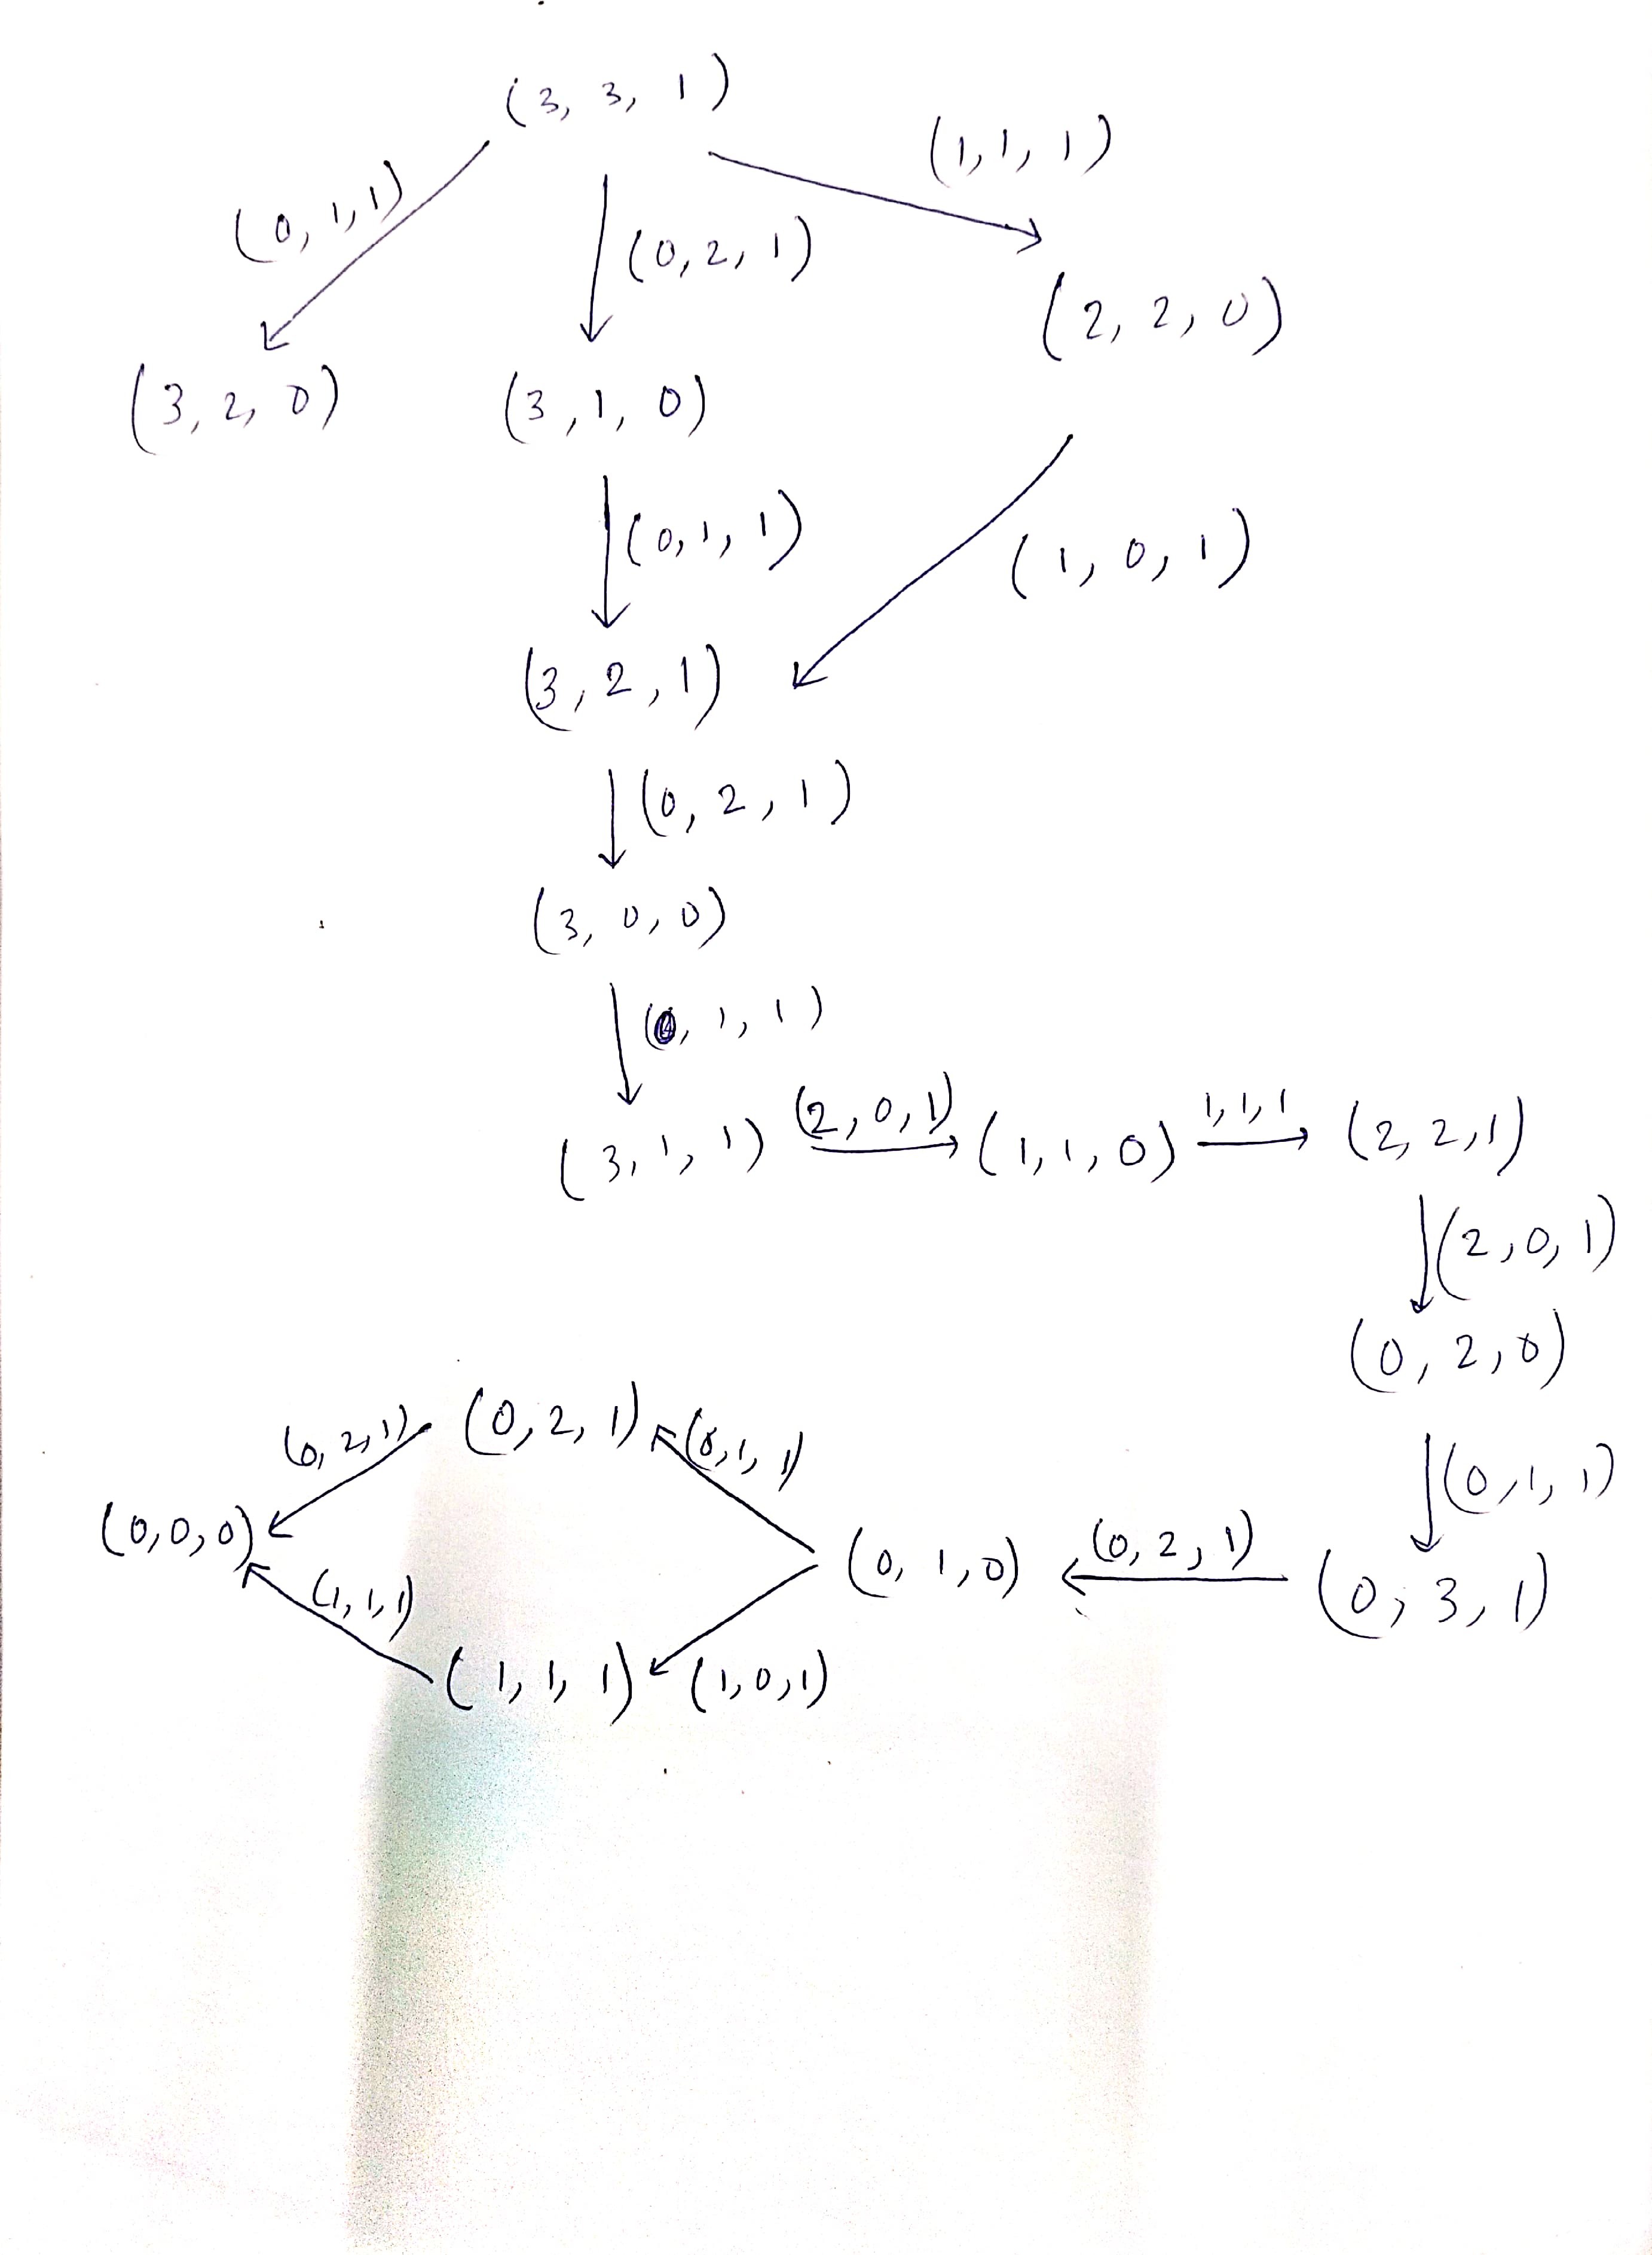 (3, 3, 1)
(1, 1, 1)
(0, 1, 1)
(0, 2, 1)
(2, 2, 0)
(3, 2, 0) (3, 1, 0)
(0, 1, 1) (1, 0, 1)
(3, 2, 1)
(0, 2, 1)
(3, 0, 0)
(0, 1, 1)
(3, 1, 1) (2, 0, 1) (1, 1, 0) 1, 1, 1 (2, 2, 1)
(2, 0, 1)
(0, 2, 0)
(0, 2, 1) (0, 2, 1) (0, 1, 1)
(0, 1, 1)
(0, 0, 0) (0, 1, 0) (0, 2, 1) (0, 3, 1)
(1, 1, 1)
(1, 1, 1) (1, 0, 1)